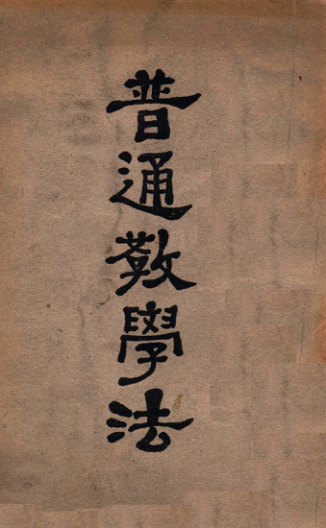 普通敎學法